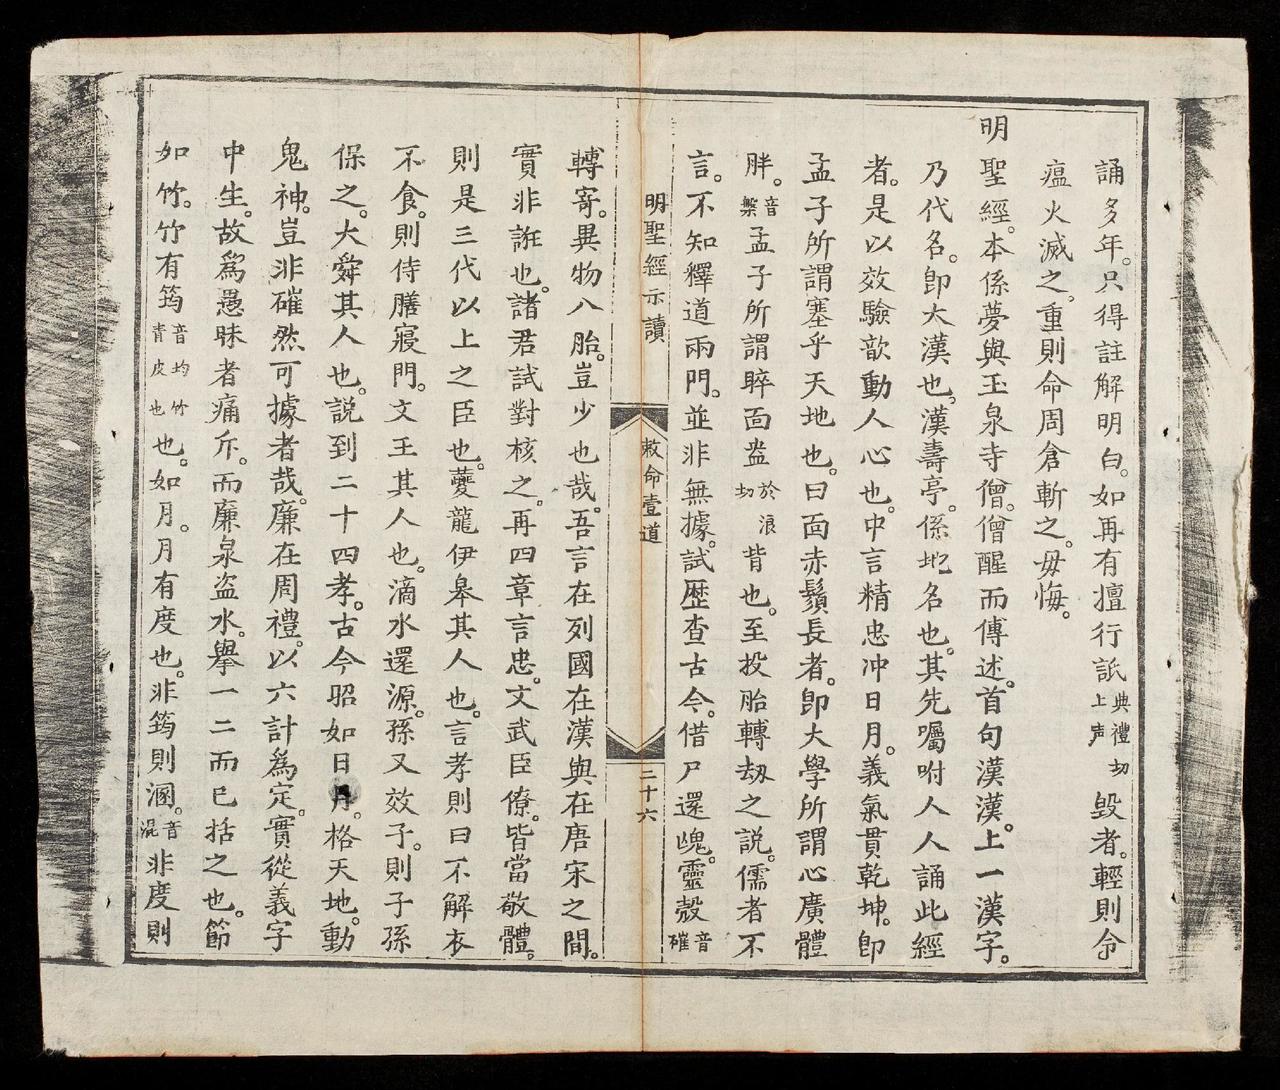 誦多年。只得註解明白。如再有擅行詆典禮切上声毀者。輕則令
瘟火滅之，重則命周倉斬之。毋悔。
明聖經。本係夢與玉泉寺僧。僧醒而傳述。首句漢漢。上一漢字。
乃代名。卽大漢也，漢壽亭。係地名也。其先囑咐人人誦此經
者。是以效驗歆動人心也。中言精忠冲日月。義氣貫乾坤。卽
孟子所謂塞乎天地也。曰面赤鬚長者。卽大學所謂心廣體
胖。音槃孟子所謂睟面盎於浪切背也。至投胎轉劫之說。儒者不
言。不知釋道兩門。並非無據。試歷查古今。借尸還魄。靈殼音
明聖經示讀
敕命壹道
二十六
轉寄。異物八胎。豈少也哉。吾言在列國在漢與在唐宋之間。
實非誑也。諸君試對核之。再四章言忠。文武臣僚。皆當敬體。
則是三代以上之臣也。夔龍伊皋其人也。言孝則曰不解衣
不食。則侍膳寢門。文王其人也。滴水還源。孫又效子。則子孫
保之。大舜其人也。說到二十四孝。古今昭如日月。格天地。動
鬼神。豈非確然可據者哉。廉在周禮。以六計為定。實從義字
中生。故為愚昧者痛斥。而廉泉盗水。舉一二而已括之也。節
如竹。竹有筠音均竹青皮也也。如月。月有度也。非筠則溷。音混非度則